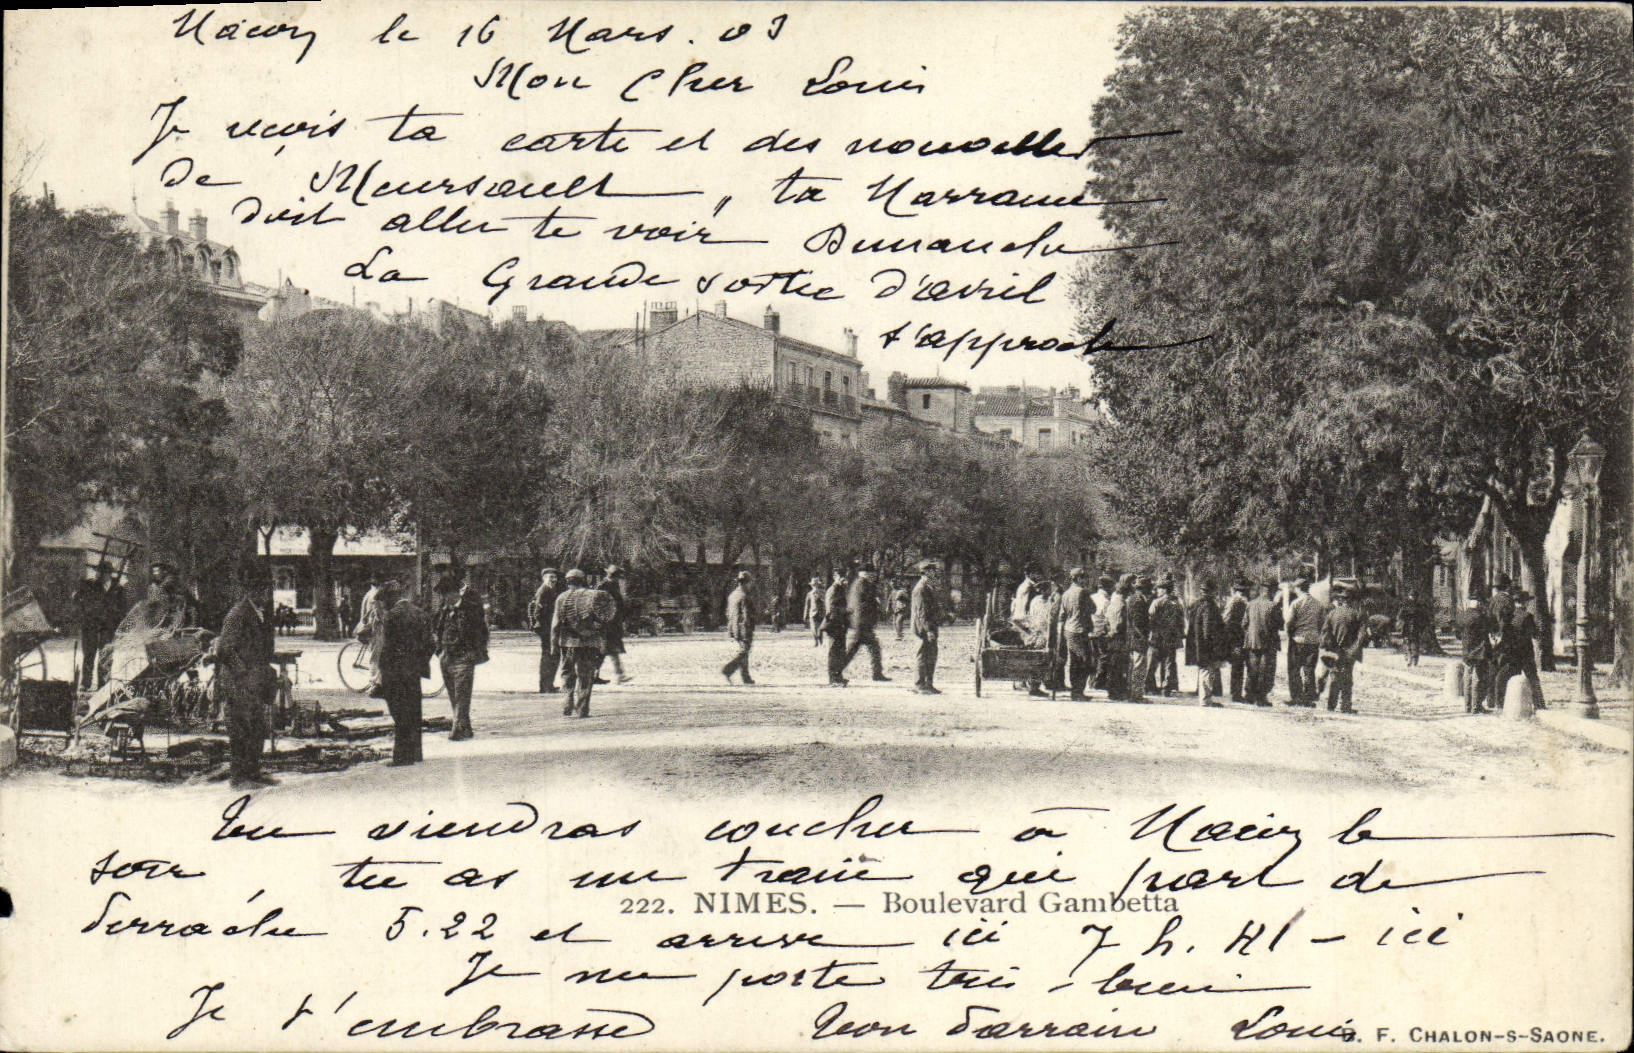 Mâcon le 16 Mars . 03
Mon Cher Louis
Je reçois ta carte et des nouvelles
de Meursault, ta Marraine
doit aller te voir Dimanche
La Grande sortie d'avril
s'approche
Tu viendras coucher à Mâcon le
soir, tu as un train qui part de
222. NIMES. — Boulevard Gambetta
Perrache 5.22 et arrive ici 7 h. 41 - ici
Je me porte très bien
Je t'embrasse Ton Parrain Louis
B. F. CHALON-S-SAONE.